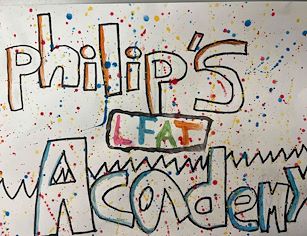 Philip's
LFAT
Academy